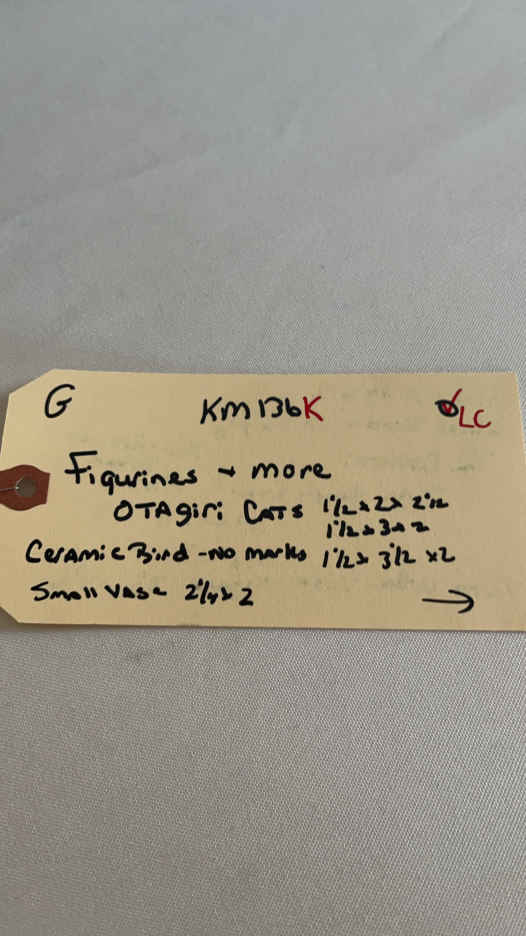 G KM136K LC
Figurines + more
OTAgiri CATS 1 1/2 x 2 x 2 1/2
1 1/2 x 3 x 2
Ceramic Bird - No marks 1 1/2 x 3 1/2 x 2
Small Vase 2 1/4 x 2 →